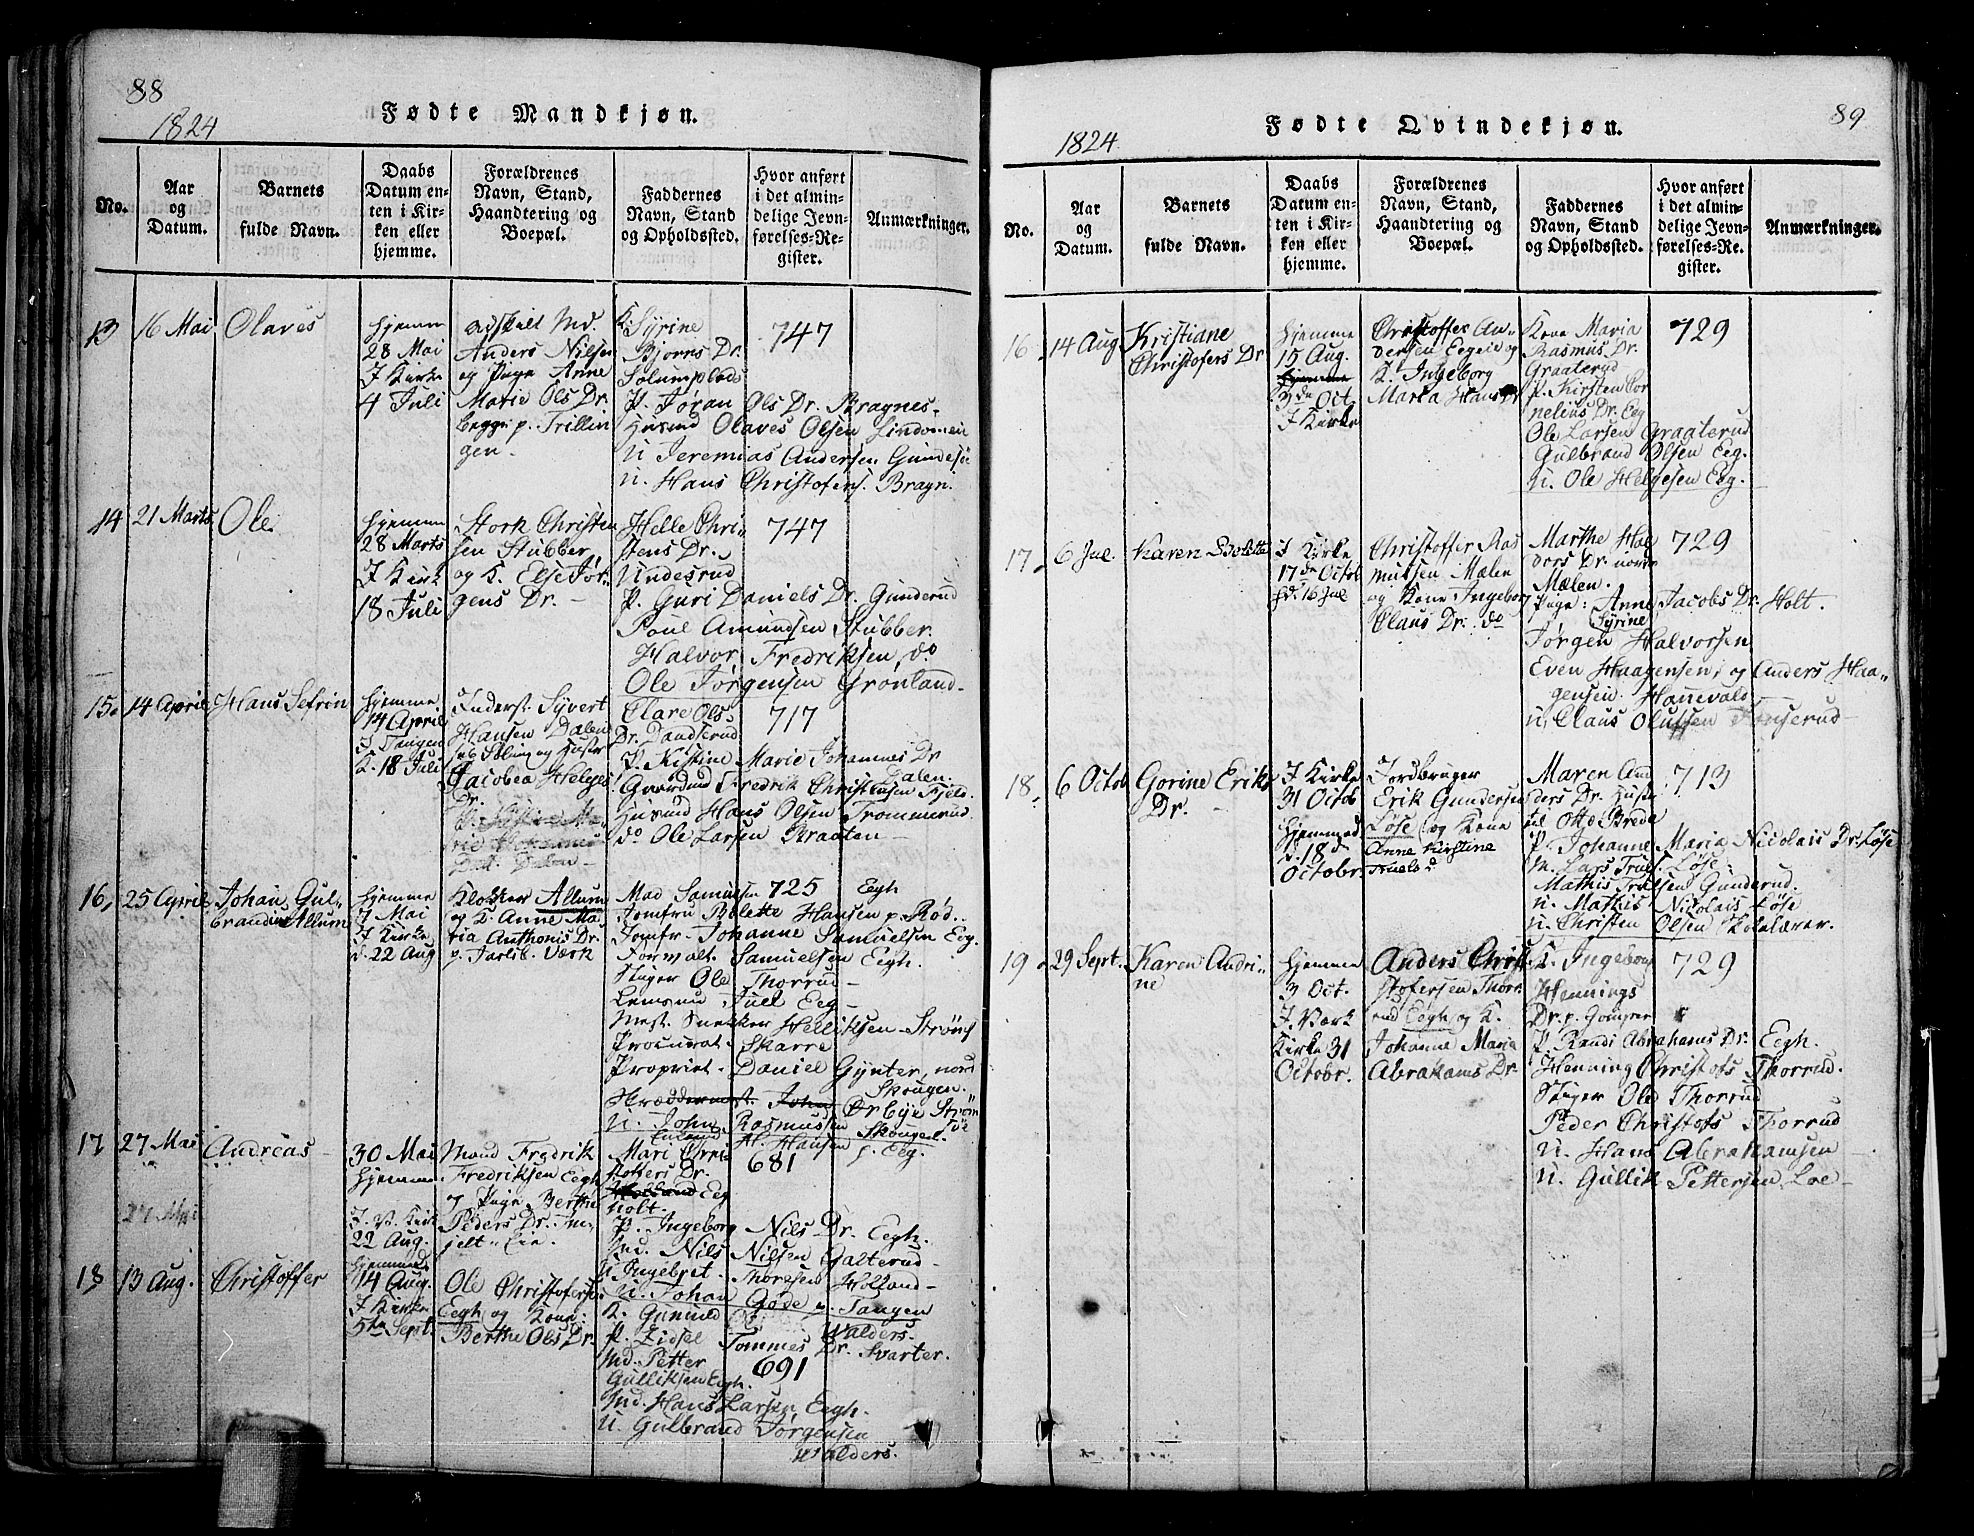 88
1824
Fødte Mandkjøn.
No.
Aar
og
Datum.
Barnets
fulde Navn.
Daabs
Datum en-
ten i Kir-
ken eller
hjemme.
Forældrenes
Navn, Stand,
Haandtering og
Boepæl.
Faddernes
Navn, Stand
og Opholdssted.
Hvor anført
i det almin-
delige Jevn-
førelses-Re-
gister.
Anmærkninger.
13
16 Mai
Olaves
hjemme
28 Mai
I Kirke
4 Juli
Md.
Anders Nilsen
og Pige Anne
Marie Ols Dr.
begge p. Trillin
gen.
K. Syrine
Bjorns Dr.
Solumplads
P. Jøran Ols Dr. Bragnes.
Husmd Olaves Olsen
U Jeremias Andersen
U. Hans Christofers. Bragn.
747
14
21 Marts
Ole
hjemme
28 Marts
I Kirk
18 Juli
Stork Christen
sen Stubber,
og K. Else Jør
gens Dr. –
Helle Chri
stens Dr.
Undesrud
P. Guri Daniels Dr. Gunderud
Poul Amundsen Stubber.
Halvor Fredriksen, do
Ole Jørgensen Grønland
747
15.
14 April
Hans Sefrin
hjemme
14 April
I Tangen
K. 18 Juli
Inderst. Syvert
Hansen Dalen
Jacobea Helges
Dr.
Clare Ols
Dr.
P. Kistine Marie Johannes Dr
Dalen.
Fredrik Christensen Fjeld.
Husmd Hans Olsen Trommerud
do Ole Larsen Braaten –
717
16,
25 April
Johan Gul-
brandus Allum
hjemme
7 Mai
I Kirke
d. 22 Aug
Klokker Allum
og K. Anne Ma
ria Anthonis Dr.
p. Jarlsb. Værk
Mad Samuelsen
Jomfru Bolette Hansen p. Rød.
Jomfr. Johanne Samuelsen Eeg.
Forvalt. Samuelsen Eegh.
Stiger Ole Thorrud –
Juel Eeg –
Mest. Snekker Helliksen
Procurat. Skarre
Propriet. Daniel Gynter, nord
Skougen.
U. John Rasmussen
H. Hansen
725
Eegh
17
27 Mai
Andreas
30 Mai
hjemme
I. V. Kirk
22 Aug.
Mand Fredrik
Fredriksen Eegh
og Pige Berthe
Peders Dr.
Mari Chri
stofers Dr.
Eeg
holt.
P. Ingeborg Nils Dr. Eegh.
Md. Nils Nilsen Galterud
U Ingebret Holland
U. Johan Gøde p. Tangen
681
18
13 Aug.
Christoffer
hjemme
14 Aug.
I Kirke
5te Sept.
Ole Christofersen
Eegh og Kone:
Berthe Ols Dr.
K. Gunild
Walders.
P. Zidsel Tommes Dr. Svarter.
Md. Petter
Gulliksen Eegh.
Md. Hans Larsen Eegh.
U. Gulbrand Jørgensen
Walders.
691
89
1824
Fødte Qvindekjøn.
No.
Aar
og
Datum.
Barnets
fulde Navn.
Daabs
Datum en-
ten i Kir-
ken eller
hjemme.
Forældrenes
Navn, Stand,
Haandtering og
Boepæl.
Faddernes
Navn, Stand
og Opholdssted.
Hvor anført
i det almin-
delige Jevn-
førelses-Re-
gister.
Anmærkninger.
16
14 Aug
Kristiane
Christofers Dr
hjemme
15 Aug.
hjemme
3de Oct
I Kirke
Christoffer An-
dersen og
K. Ingeborg
Maria Hans Dr
Kone Maria
Rasmus Dr.
Graaterud
P. Kirsten Cor
nelius Dr. Eeg
Ole Larsen Graaterud
Gulbrand Olsen Eeg.
U. Ole Helgesen Eeg.
729
17,
6 Jul.
Karen Bolette
I Kirke
17de Octob
hd. 16 Jul
Christoffer Ras
mussen Mælen
og Kone Ingeborg
Claus Dr. do
Marthe Hal
vors Dr. nordr
Mælen.
Pige: Anne Jacobs Dr. Holt.
Syrine
Jørgen Halvorssen
Even Haagensen, og Anders Haa-
gensen. Hanevold
U. Claus Olufsen
729
18,
6 Octob
Gorine Eriks
Dr.
I Kirke
31 Octob
hjemmed
d. 18de
Octobr.
Jordbruger
Erik Gundersen
Løse og Kone
Anne Kirstine
Truels d
Maren And
ders Dr. Huste
til Otto Brede
P. Johanne Maria Nicolais Dr. Løse
M. Lars Truels. Løse
Mathis Trulsen Gunderud.
U. Mathis Nikolais Løse
U. Christen Olsen Skolelærer.
713
19
29 Sept.
Karen Andri-
ne
hjemme
3 Oct.
I. Værk
Kirke 31
Octobr.
Anders Chri
stofersen Thorr
rud Eegh og K.
Johanne Maria
Abrahams Dr
K. Ingeborg
Hennings
Dr. p.
P. Randi Abrahams Dr. Eegh.
Henning Christofs Thorrud.
Stiger Ole Thorrud
Peder Christofs Thorrud
U. Hans Abrahamsen
U. Gullik Pettersen Loe
729